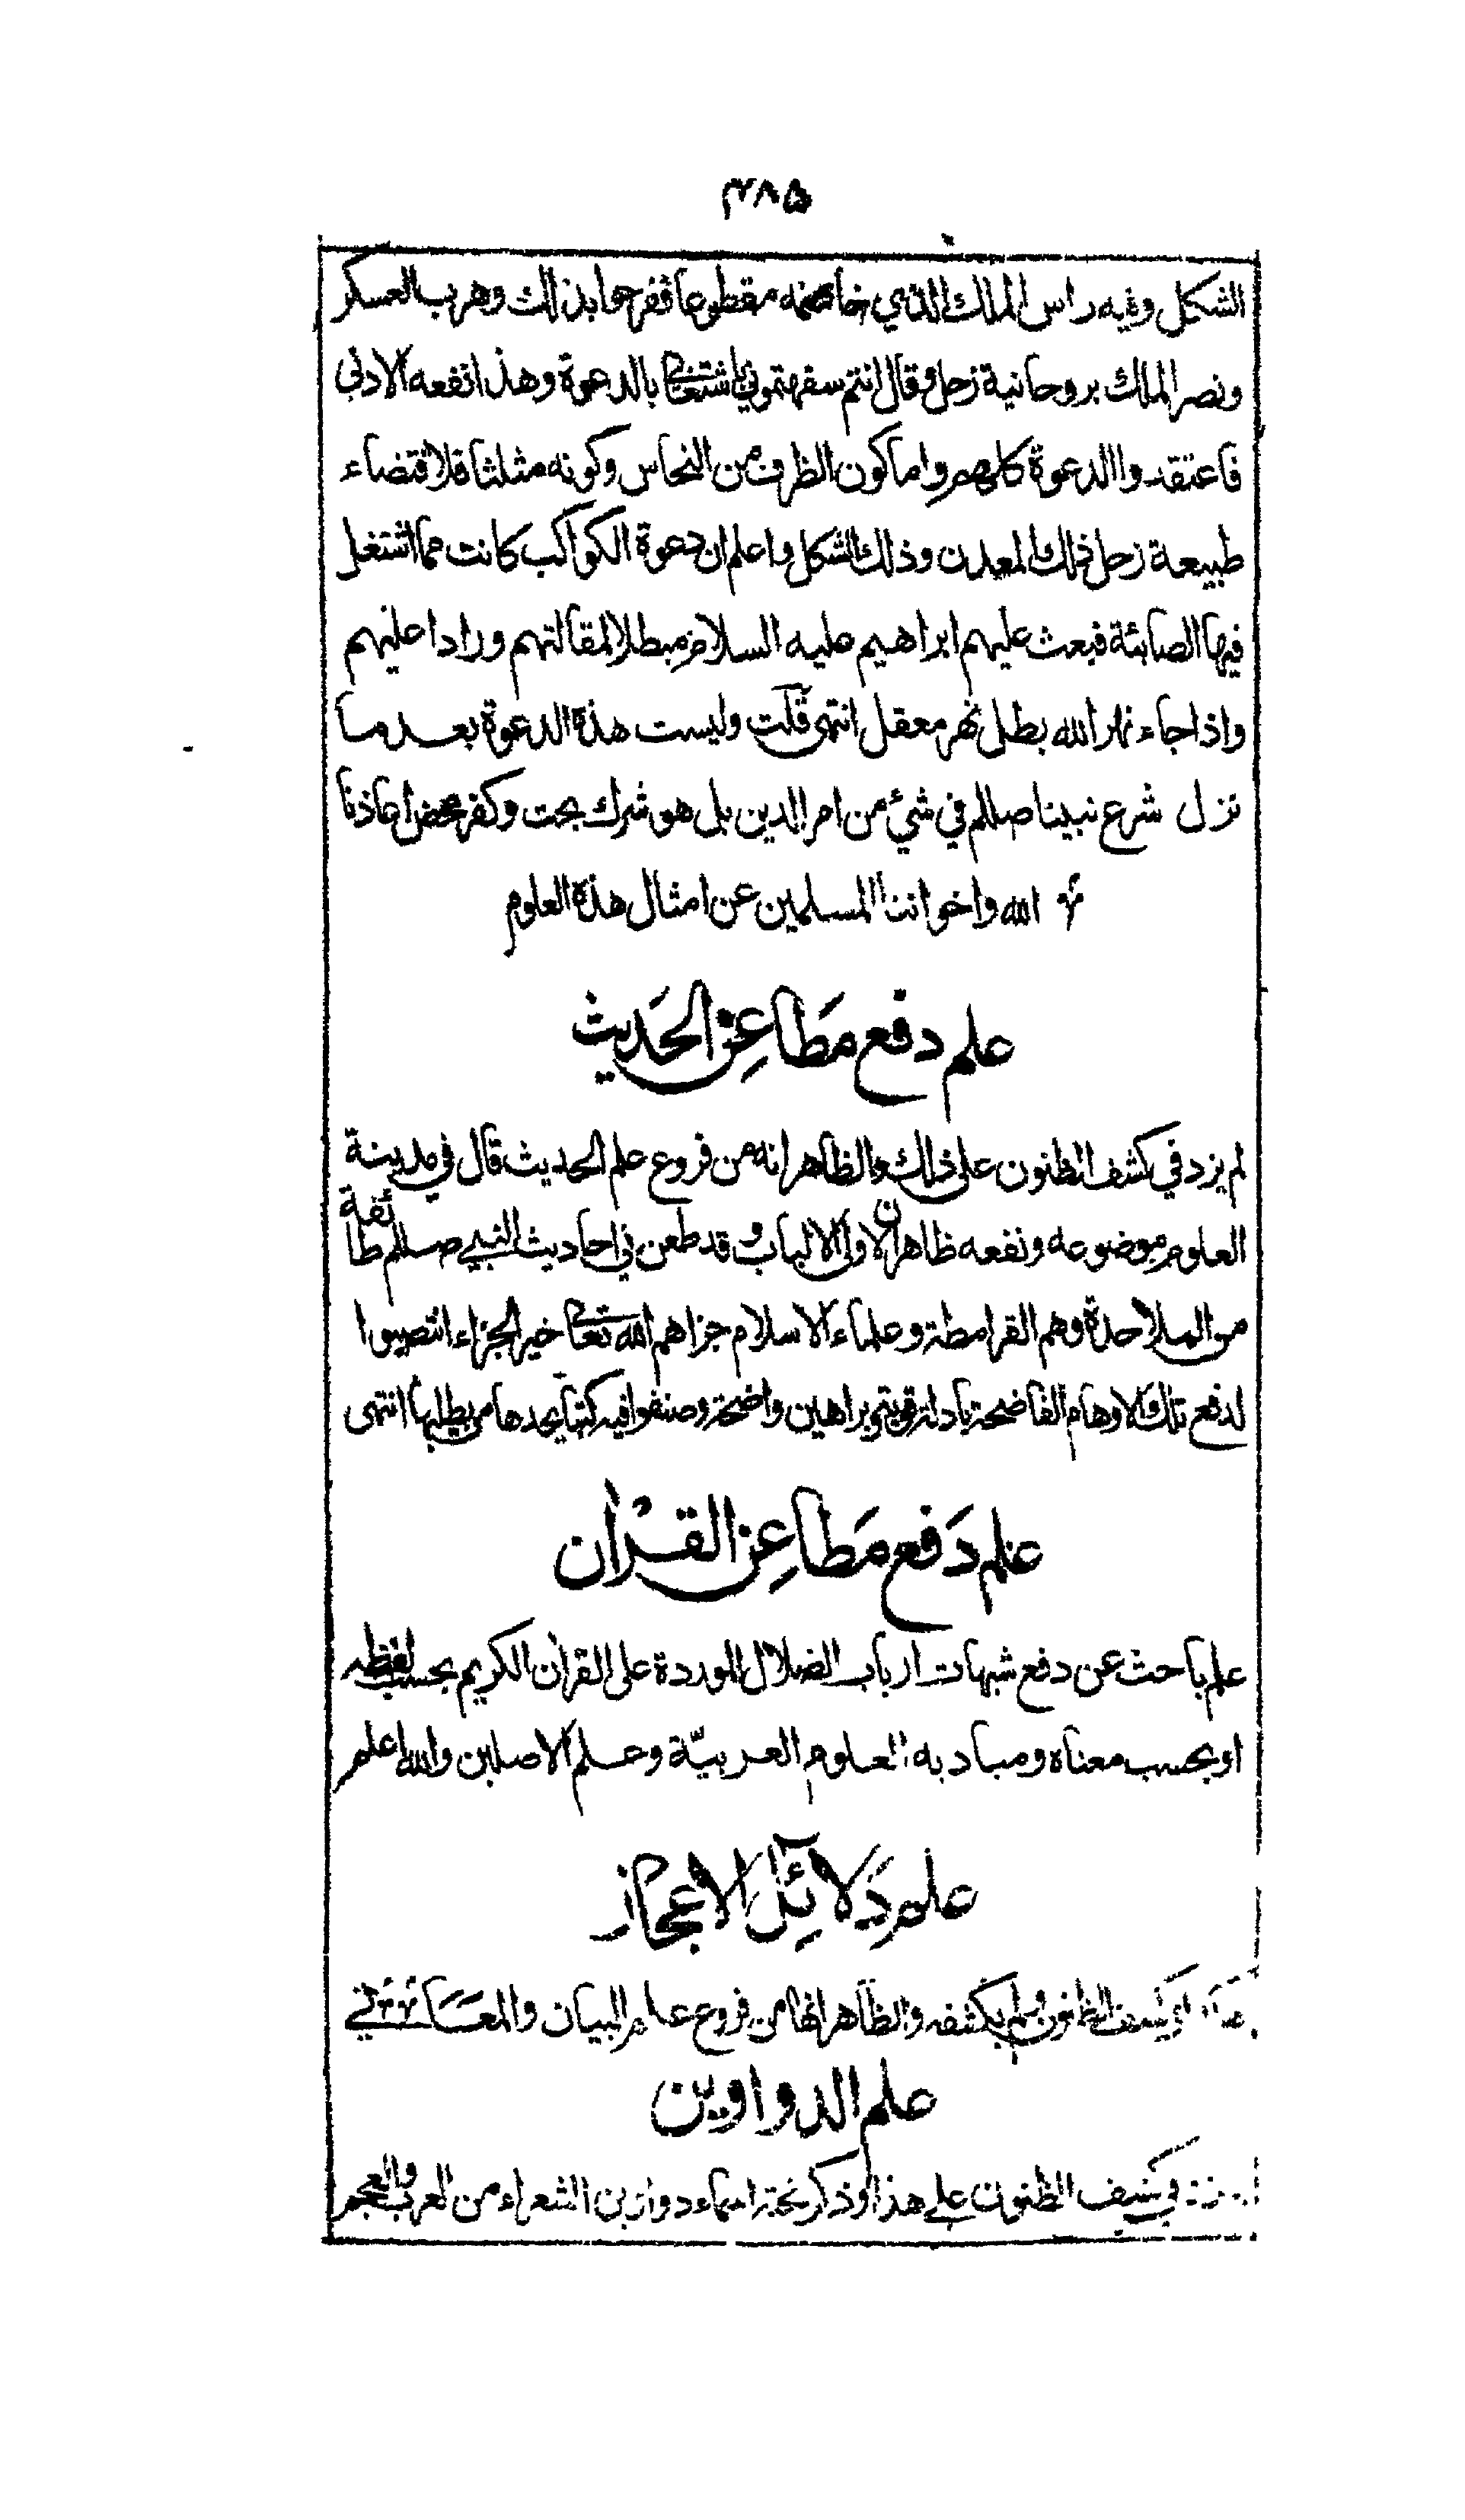 ٣٨٥
الشكل وفيه راس الملك الذي خاصمه مقطوعا ففرحوا بذالك وهرب العسكر
ونصر الملك بروحانية زحل وقال انتم سفهتموني باشتغالى بالدعوة وهذا نفعه الادنى
فاعتقدوا الدعوة كلهم واما كون الظرف من النحاس وكونه مثلثا فلاقتضاء
طبيعة زحل ذلك المعدن وذلك الشكل واعلم ان دعوة الكواكب كانت مما اشتغل
فيها الصابئة فبعث عليهم ابراهيم عليه السلام مبطلا لمقالتهم ورادا عليهم
واذا جاء نهر الله بطل نهر معقل انتهى قلت وليست هذه الدعوة بعد ما
نزل شرع نبينا صللم في شيء من امر الدين بل هو شرك بحت وكفر محض اعاذنا
الله واخواننا المسلمين عن امثال هذه العلوم
علم دفع مطاعن الحديث
لم يزد في كشف الظنون على ذلك والظاهر انه من فروع علم الحديث قال في مدينة
العلوم موضوعه ونفعه ظاهران لاولى الالباب وقد طعن في احاديث النبي صللم طائفة
من الملاحدة وهم القرامطة وعلماء الاسلام جزاهم الله تعالى خير الجزاء انتصبوا
لدفع تلك الاوهام الفاضحة بادلة قوية وبراهين واضحة وصنفوا فيه كتبا يجدها من يطلبها انتهى
علم دَفع مَطاعِن القُرْان
علم باحث عن دفع شبهات ارباب الضلال الموردة على القران الكريم بحسب لفظه
او بحسب معناه ومباديه العلوم العربيّة وعلم الاصلين والله اعلم
علم دَلائِل الاعجاز
في كشف الظنون ولم يكشفه والظاهر انها من فروع علم البيان والمعَانِي
علم الدواوين
في كشف الظنون على هذا وذكر تحته اسماء دواوين الشعراء من العرب والعجم